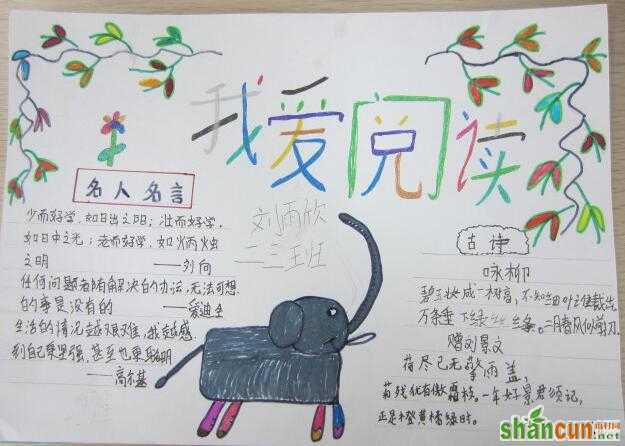 我爱阅读
名人名言
少而好学,如日出之阳;壮而好学,
如日中之光;老而好学,如炳烛
之明
——刘向
任何问题都有解决的办法,无法可想
的事是没有的
——爱迪生
生活的情况越艰难,我越感
到自己更坚强,甚至也更聪明
——高尔基
刘炳欣
二三王班
古诗
咏柳
碧玉妆成一树高,
万条垂下绿丝绦。二月春风似剪刀
赠刘景文
荷尽已无擎雨盖,
菊残犹有傲霜枝。一年好景君须记,
正是橙黄橘绿时。
shancun.net